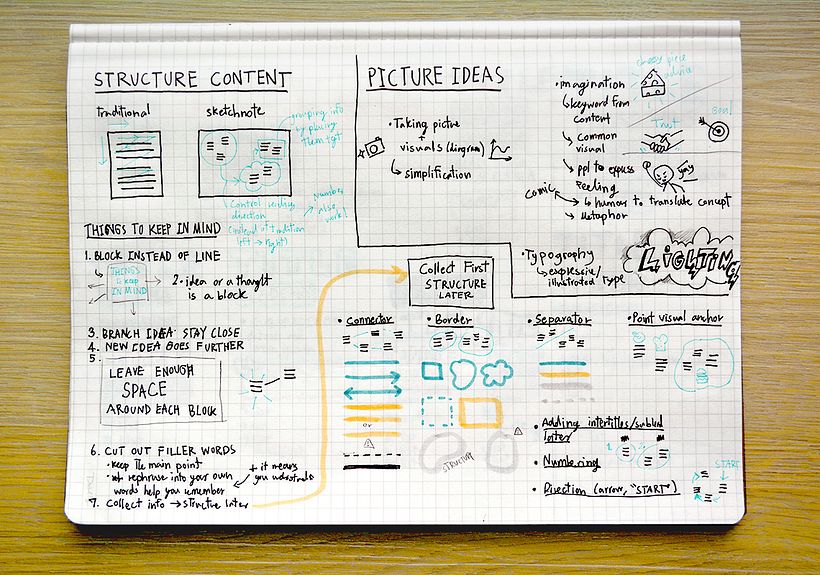 STRUCTURE CONTENT
traditional
sketchnote
grouping info
by placing
them tgt
Control reading
direction
(instead of tradition
left → right)
Number
also
work!
THINGS TO KEEP IN MIND
1. BLOCK INSTEAD OF LINE
THINGS
to keep
IN MIND
2. idea or a thought
is a block
3. BRANCH IDEA STAY CLOSE
4. NEW IDEA GOES FURTHER
5.
LEAVE ENOUGH
SPACE
AROUND EACH BLOCK
6. CUT OUT FILLER WORDS
• keep the main point
• rephrase into your own
words help you remember
+ it means
you understand
7. Collect info → structure later
PICTURE IDEAS
• Taking pictue
+
visuals (diagram)
simplification
• imagination
keyword from
content
common
visual
ppl to express
Feeling
Comic
to human to translate concept
metaphor
cheesy piece
advice
Trust
Goal
yay
• Typography
expressive/
illustrated type
LIGHTING!
Collect First
STRUCTURE
LATER
• Connector
or
• Border
STRUCTURE
• Separator
• Point visual anchor
• Adding intertitles/
later
1
2
• Numbering
• Direction (arrow, "START")
START